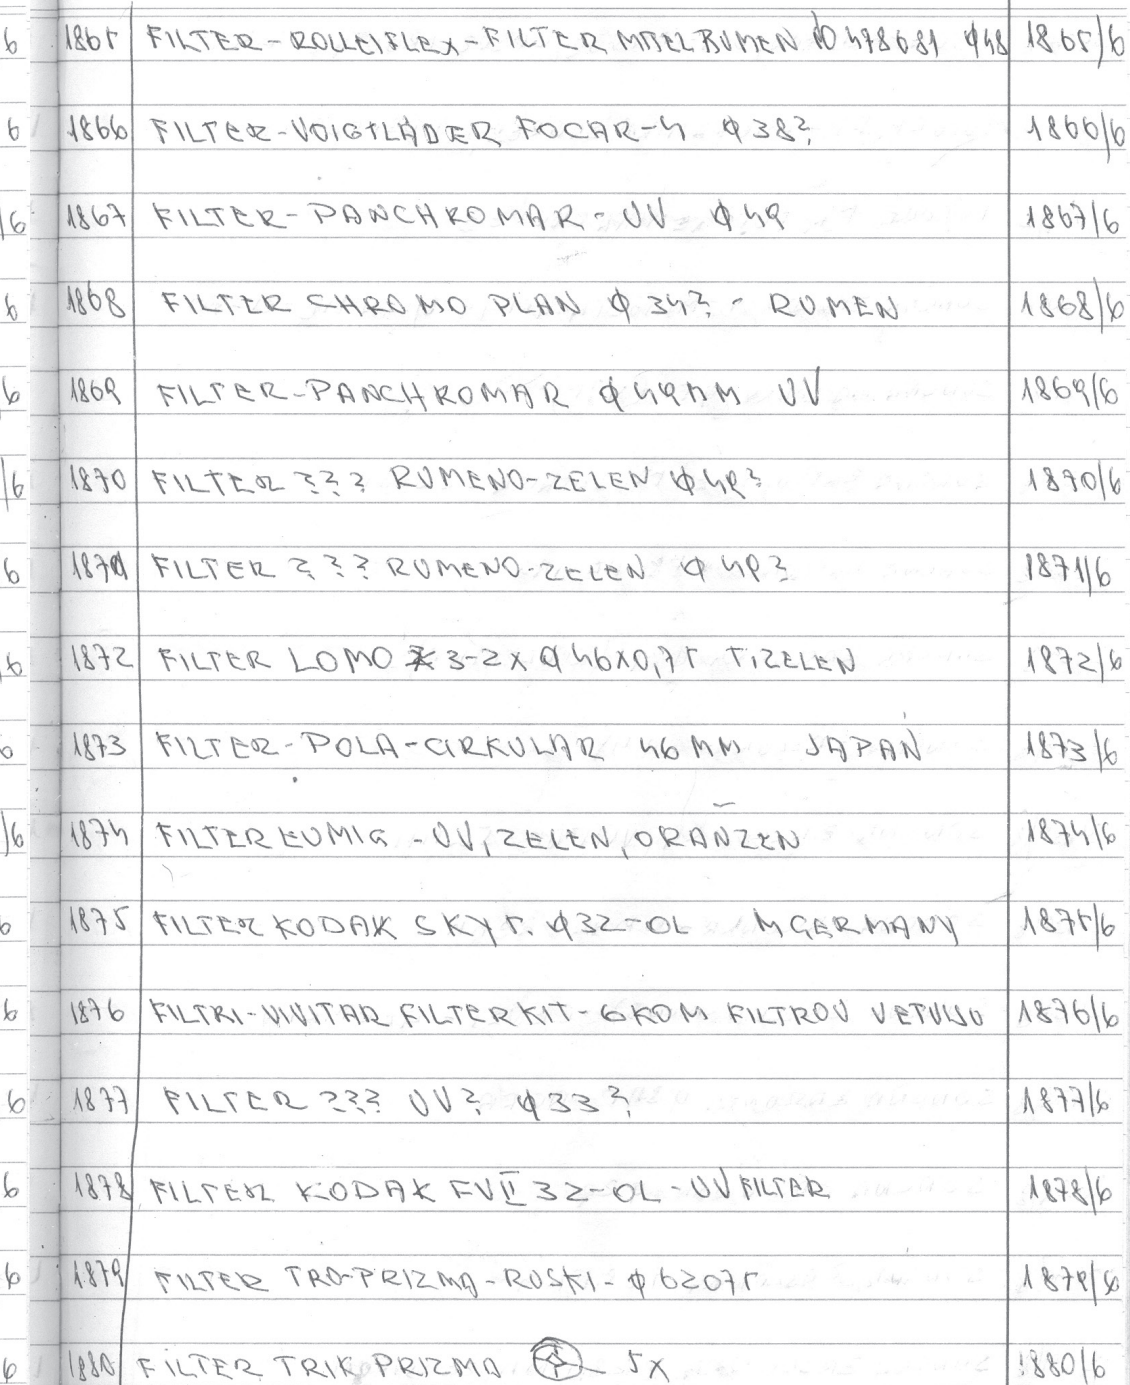 6 1865 FILTER-ROLLEIFLEX-FILTER RUMEN 478681 φ48 1865/6
6 1866 FILTER-VOIGTLÄDER FOCAR-4 φ38? 1866/6
/6 1867 FILTER-PANCHROMAR-UV φ49 1867/6
6 1868 FILTER CHROMO PLAN φ34? - RUMEN 1868/6
6 1869 FILTER-PANCHROMAR φ49MM UV 1869/6
/6 1870 FILTER ??? RUMENO-ZELEN φ49? 1870/6
6 1871 FILTER ??? RUMENO-ZELEN φ49? 1871/6
6 1872 FILTER LOMO 3-2X φ46X0,75 T.ZELEN 1872/6
6 1873 FILTER-POLA-CIRKULAR 46MM JAPAN 1873/6
/6 1874 FILTER EUMIG - UV, ZELEN, ORANŽEN 1874/6
6 1875 FILTER KODAK SKY 5. φ32-OL M GERMANY 1875/6
6 1876 FILTRI-VIVITAR FILTER KIT-6KOM FILTROV V ETUIJU 1876/6
6 1877 FILTER ??? UV? φ33? 1877/6
6 1878 FILTER KODAK FVII 32-OL-UV FILTER 1878/6
6 1879 FILTER TRO-PRIZMA-RUSKI-φ62075 1879/6
6 1880 FILTER TRIK PRIZMA 5X 1880/6